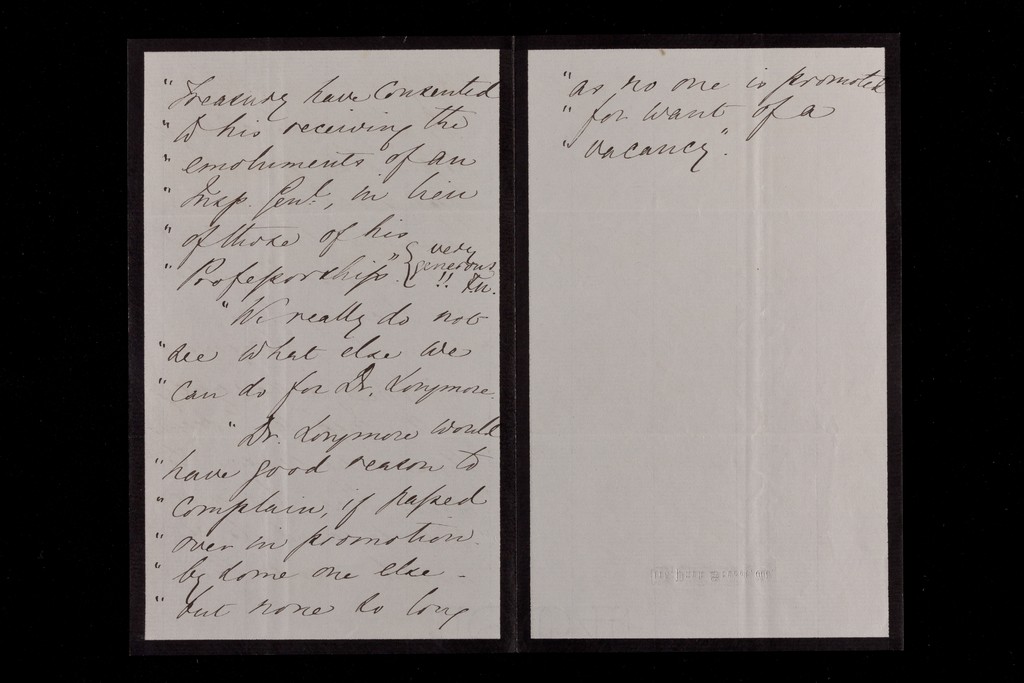 " Treasury have consented
" to his receiving the
" emoluments of an
" Insp. Genl., in lieu
" of those of his
" Professorship". { very generous !! F.N.
" We really do not
" see what else we
" can do for Dr. Longmore.
" Dr. Longmore would
" have good reason to
" complain, if passed
" over in promotion
" by some one else -
" but none so long
" as no one is promoted
" for want of a
" vacancy".